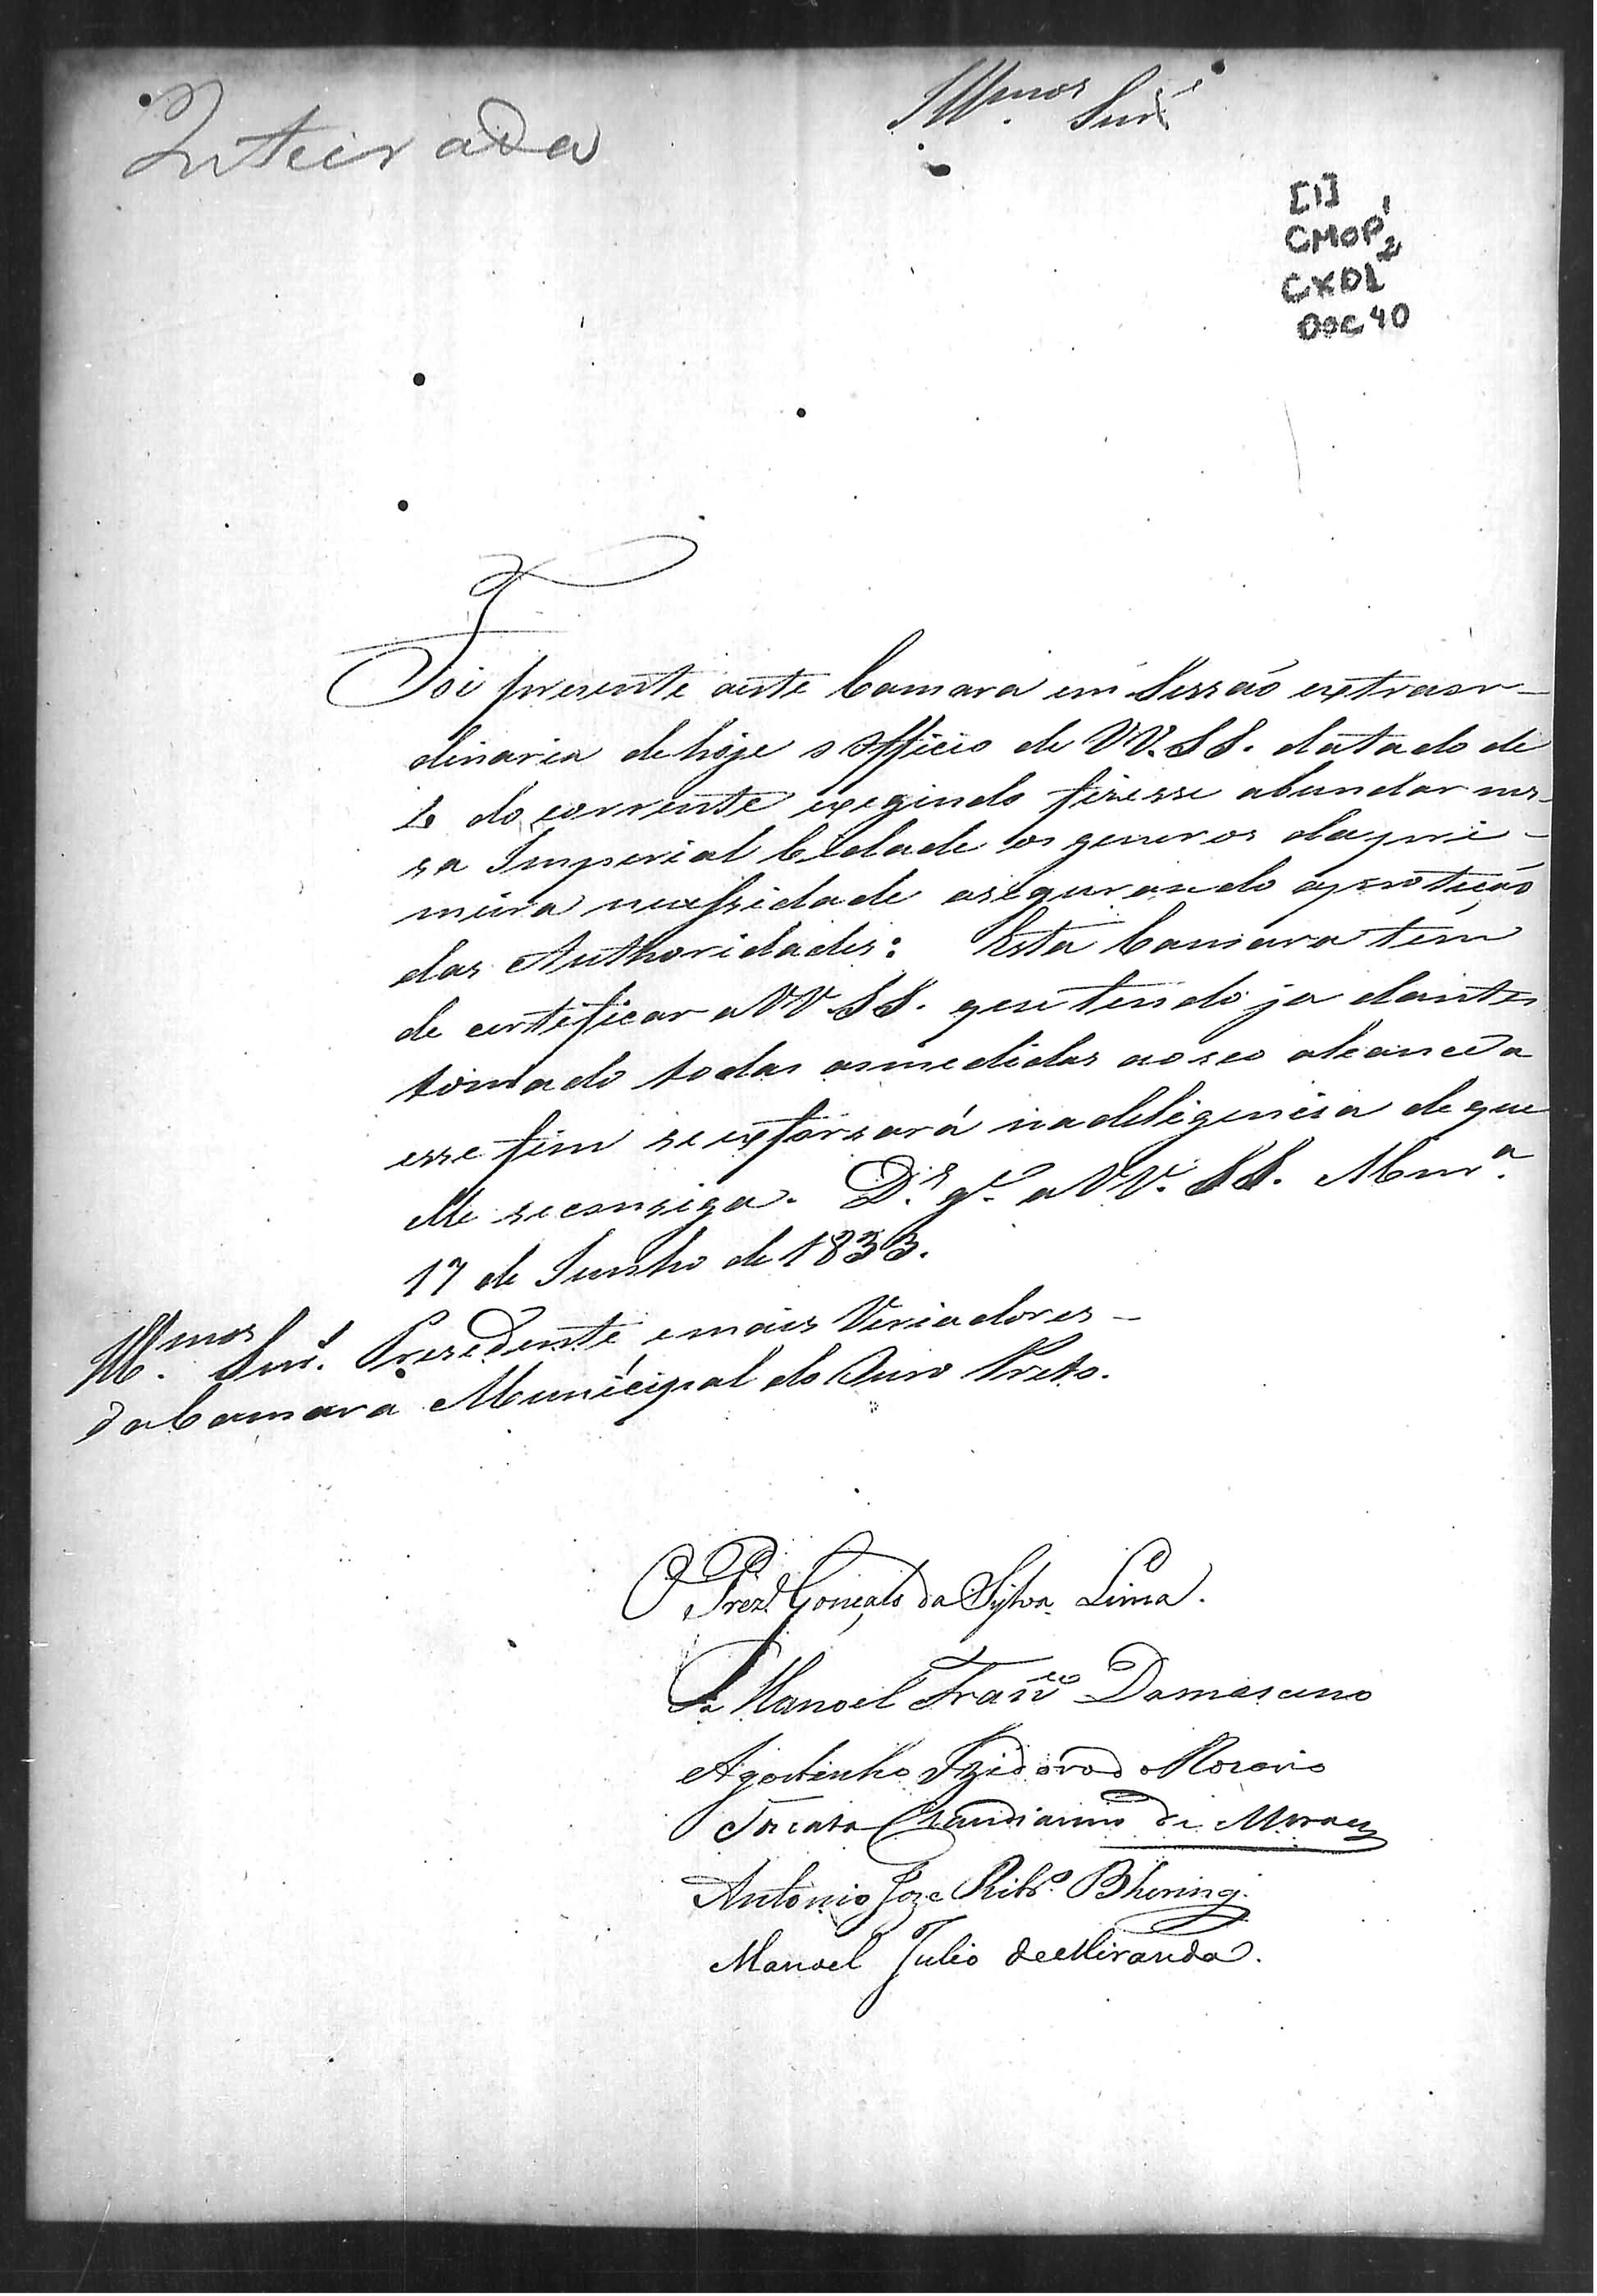 Inteirada
Illmos Snrs
[1]
CMOP 1
CXD1 2
DOC 40
Foi presente aesta Camara em Sessaõ extraor-
dinaria dehoje o Officio de VV. SS. datado de
do corrente exegindo fizesse abundar nes-
sa Imperial Cidade os generos dapri-
meira necessidade asegurando aproteçaõ
das Authoridades: Esta Camara tem
de certificar a VV SS. que tendo ja dantes
tomado todas asmedidas aoseo alcance a
esse fim se exforsará nadeligencia de que
elle seconsiga. D.s g.e a VV. SS. Mar.a
17 de Junho de 1833.
Illmos Snrs. Presidente emais Veriadores
daCamara Municipal do Ouro Preto.
O Prez.e Gonçalo da Sylva Lima.
P.e Manoel Franco Damasceno
Agostinho Izidoro do Rosario
Fortunato de Moraes
Antonio Joze Ribr.o Bhering.
Manoel Julio de Miranda.